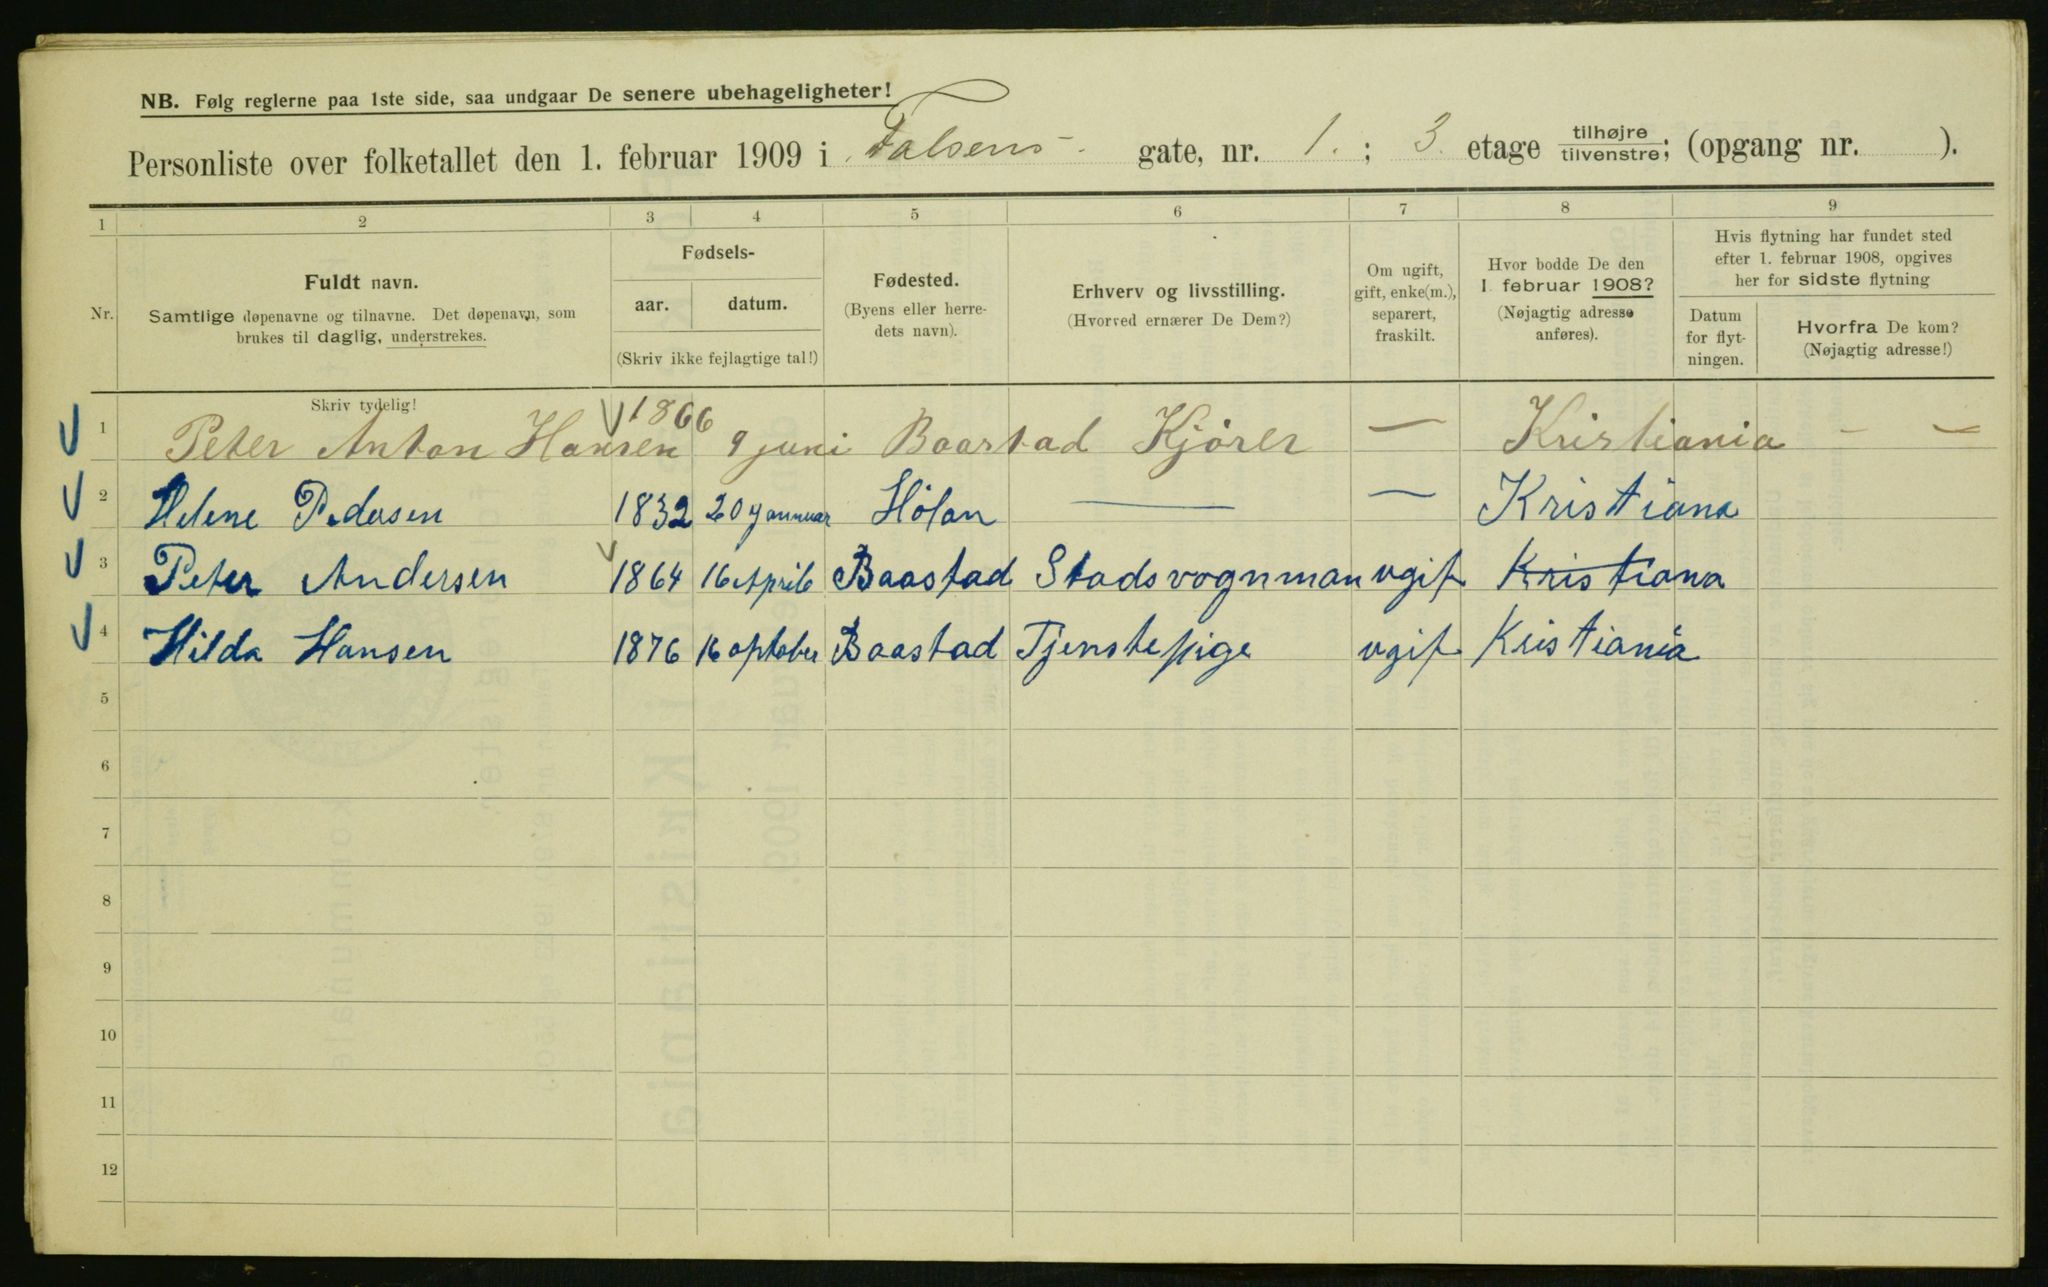 NB. Følg reglerne paa 1ste side, saa undgaar De senere ubehageligheter!
Personliste over folketallet den 1. februar 1909 i Falsens gate, nr. 1. ; 3. etage tilhøjre tilvenstre; (opgang nr. ).
1 2 3 4 5 6 7 8 9
Nr.
Fuldt navn.
Samtlige døpenavne og tilnavne. Det døpenavn, som
brukes til daglig, understrekes.
Fødsels-
aar. datum.
(Skriv ikke fejlagtige tal!)
Fødested.
(Byens eller herre-
dets navn).
Erhverv og livsstilling.
(Hvorved ernærer De Dem?)
Om ugift,
gift, enke(m.),
separert,
fraskilt.
Hvor bodde De den
1 februar 1908?
(Nøjagtig adresse
anføres).
Hvis flytning har fundet sted
efter 1. februar 1908, opgives
her for sidste flytning
Datum
for flyt-
ningen.
Hvorfra De kom?
(Nøjagtig adresse!)
Skriv tydelig!
1 Peter Anton Hansen 1866 9 juni Baastad Kjörer — Kristiania - -
2 Helene Pedersen 1832 20 januar Hölan — — Kristiana
3 Peter Andersen 1864 16 April Baastad Stadsvognman ugift Kristiana
4 Hilda Hansen 1876 16 optober Baastad Tjenstepige ugift Kristiania
5
6
7
8
9
10
11
12